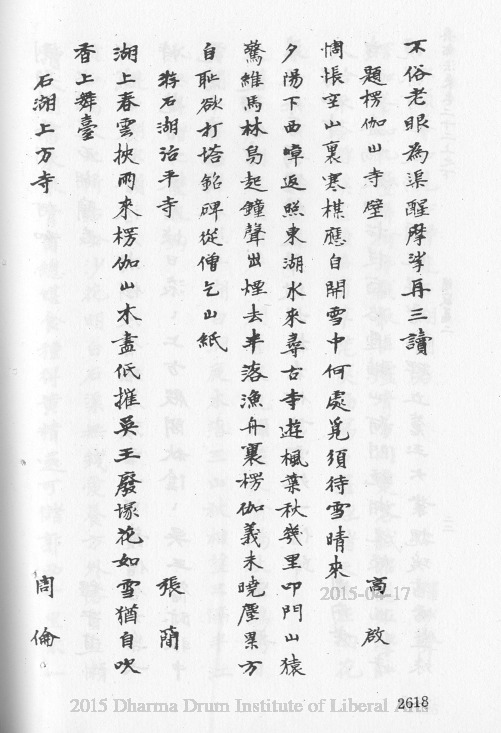 不俗老眼為渠醒摩挲再三讀
題楞伽山寺壁
惆悵空山裏寒梅應自開雪中何處覓須待雪晴來 高啟
夕陽下西嶂返照東湖水來尋古寺遊楓葉秋幾里叩門山猿
驚維馬林鳥起鐘聲出煙去半落漁舟裏楞伽義未曉塵累方
自恥欲打塔銘碑從僧乞山紙
游石湖治平寺 張蕳
湖上春雲挾雨來楞伽山木盡低摧吳王廢塚花如雪猶自吹
香上舞臺
石湖上方寺 周倫
2618
2015-04-17
2015 Dharma Drum Institute of Liberal Arts